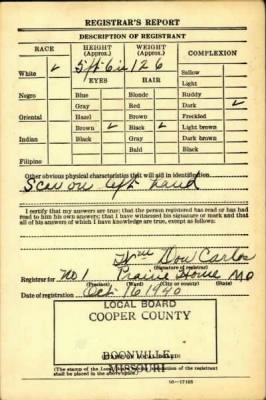 REGISTRAR'S REPORT
DESCRIPTION OF REGISTRANT
RACE HEIGHT (Approx.) WEIGHT (Approx.) COMPLEXION
White ✓ 5ft 6in 126 Sallow
EYES HAIR Light
Negro Blue Blonde Ruddy
Gray Red Dark ✓
Oriental Hazel Brown Freckled
Brown ✓ Black ✓ Light brown
Indian Black Gray Dark brown
Bald Black
Filipino
Other obvious physical characteristics that will aid in identification
Scar on left hand
I certify that my answers are true; that the person registered has read or has had
read to him his own answers; that I have witnessed his signature or mark and that
all of his answers of which I have knowledge are true, except as follows:
Wm Dow Carlos
(Signature of registrar)
Registrar for No 1 Prairie Home Mo
(Ward) (City or county)
Date of registration Oct 16 1940
LOCAL BOARD
COOPER COUNTY
BOONVILLE
MISSOURI
16-17105